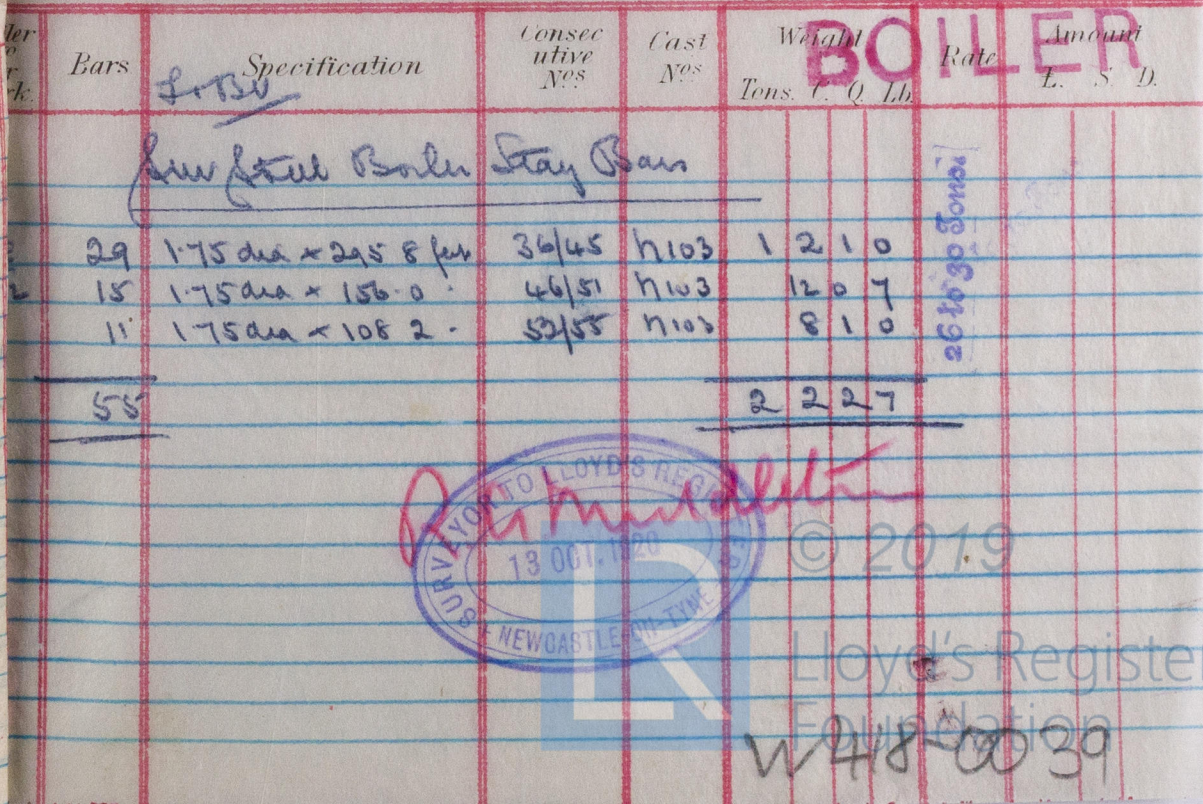 Bars Specification Consecutive Nos Cast Nos Weight Rate Amount
Tons. C. Q. Lb. £. S. D.
BOILER
Steel Boiler Stay Bars
29 1.75 dia × 295 8 36/45 h103 1 2 1 0
15 1.75 dia × 156.0 46/51 h103 12 0 7
11 1.75 dia × 108 2 52/55 h103 8 1 0
55 2 2 2 7
26 to 30 Tons
SURVEYOR TO LLOYD'S REGISTER
13 OCT. 1920
NEWCASTLE-ON-TYNE
LR
© 2019
Lloyd's Register
Foundation
W418-0039